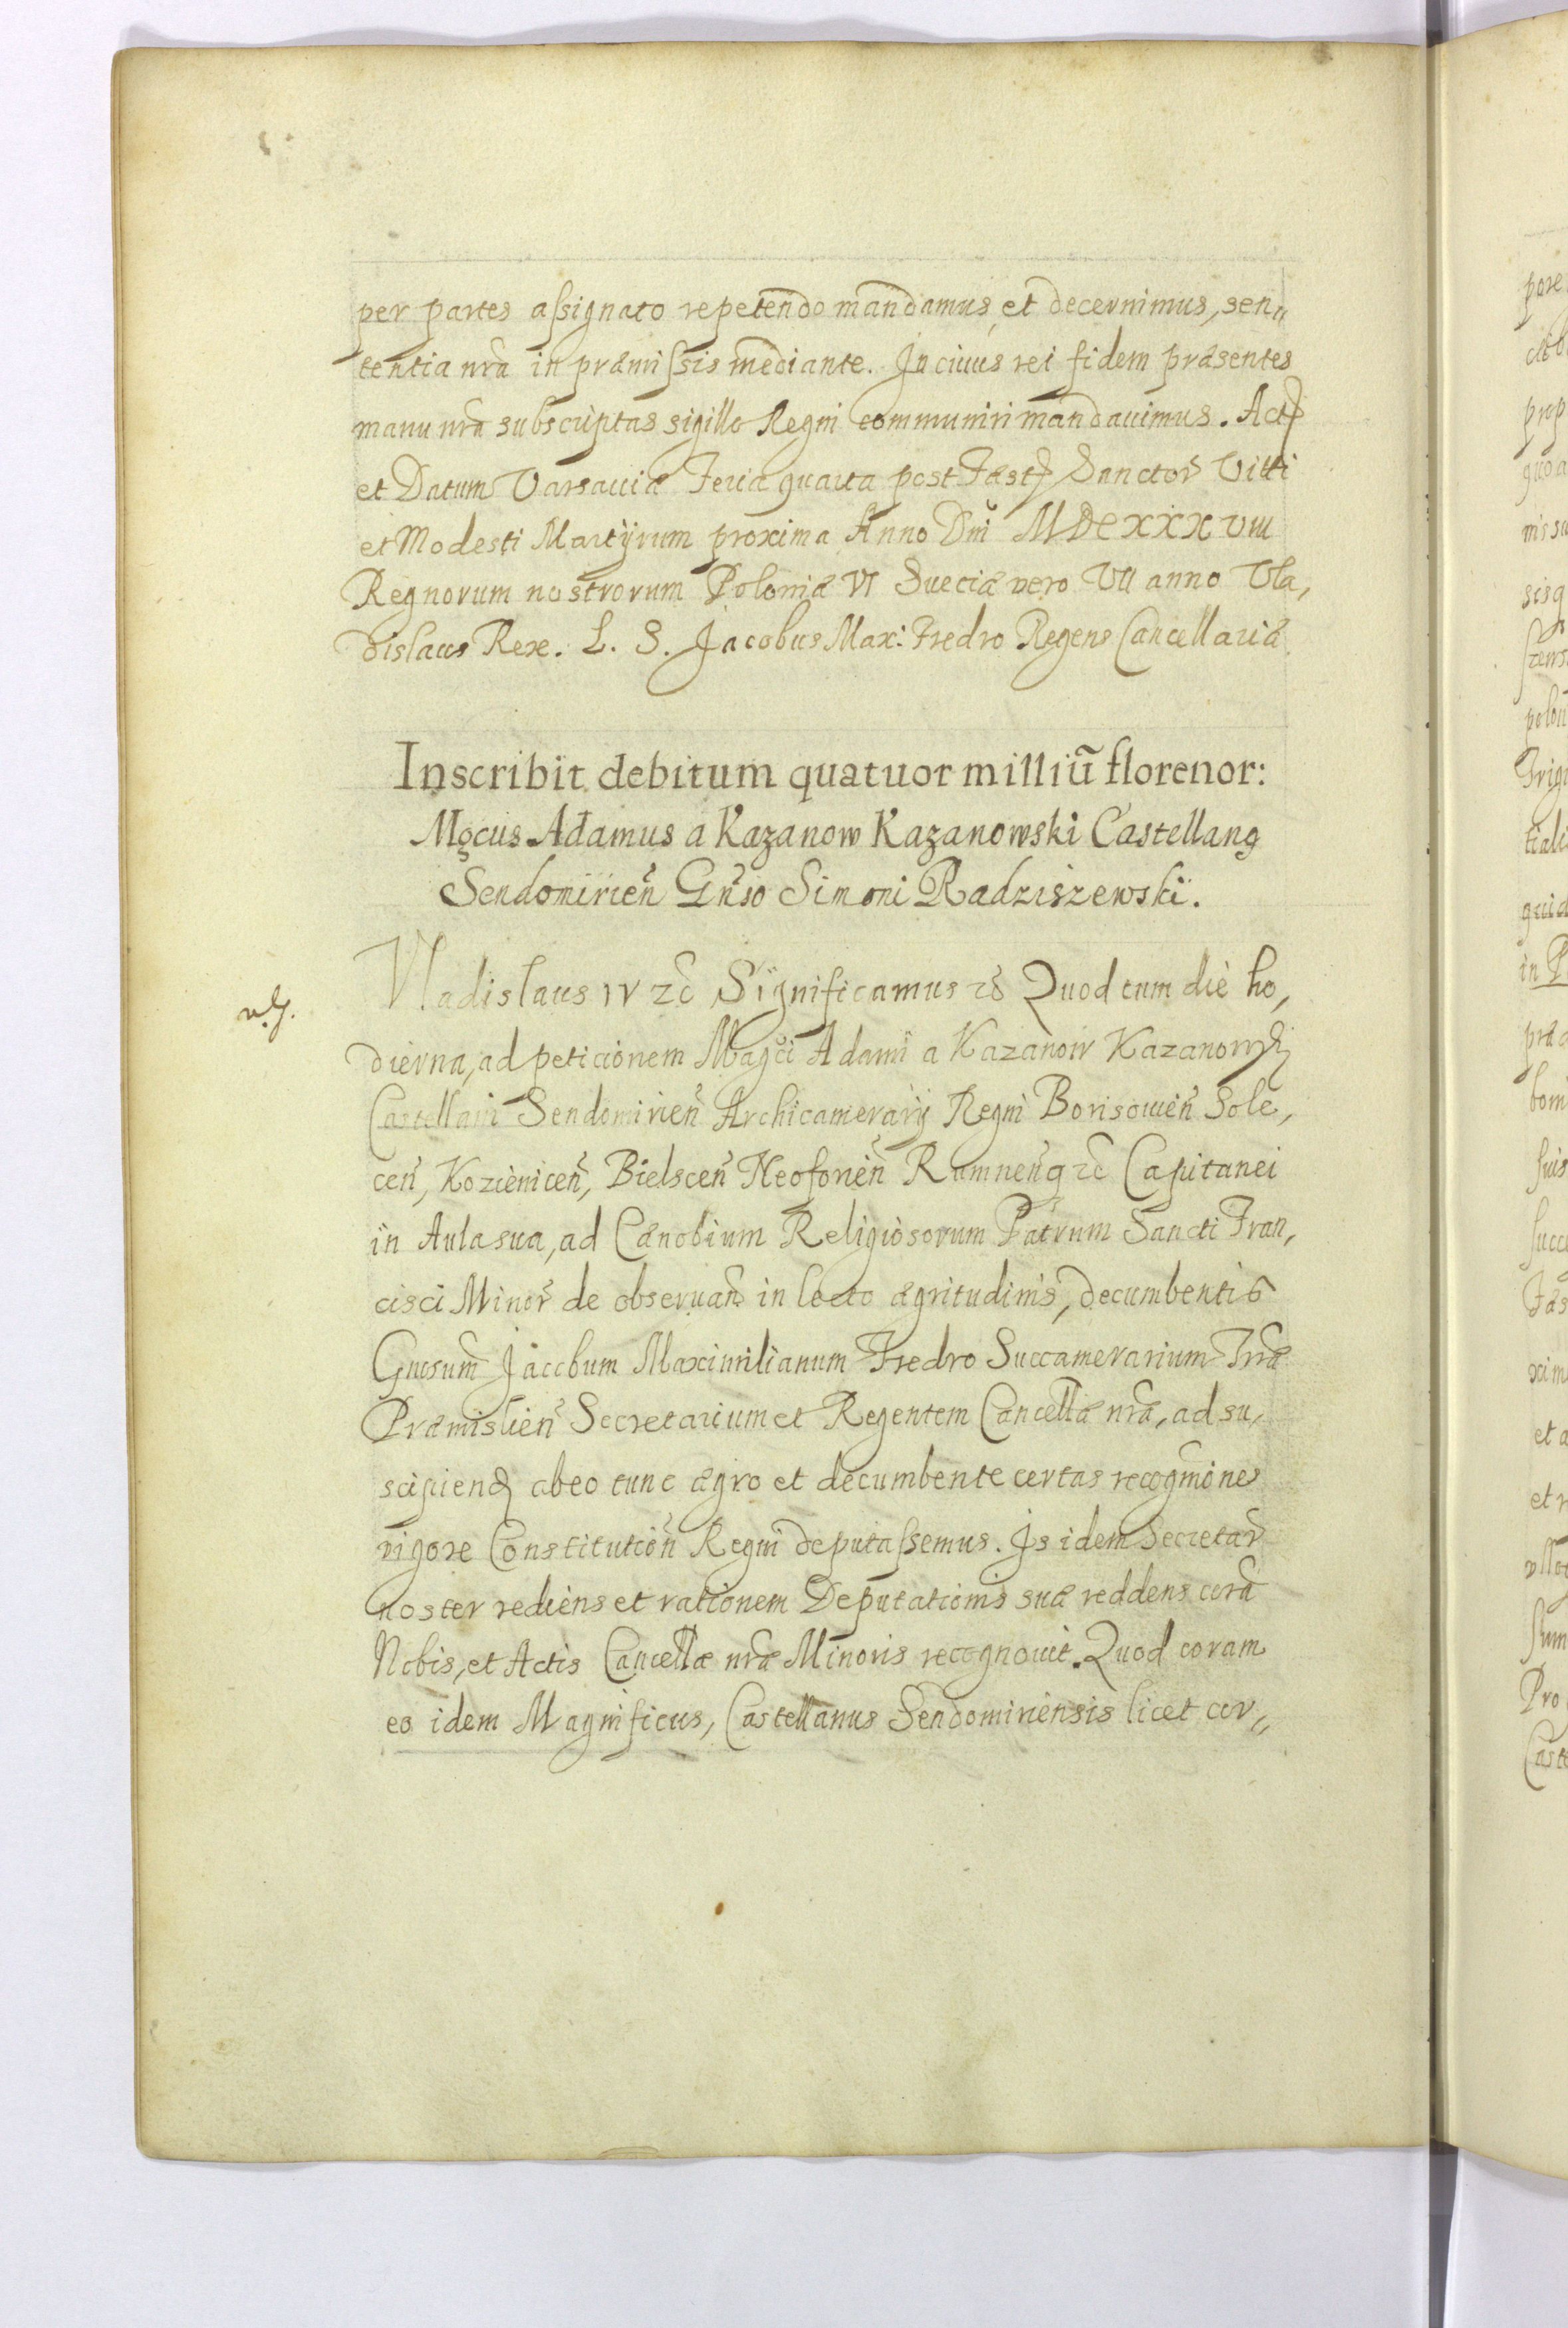 per partes assignato repetendo mandamus, et decernimus, sen„
tentia nrã in præmissis mediante. In cuius rei fidem præsentes
manu nrã subscriptas sigillo Regni communiri mandauimus. Act
et Datum Varsauiæ Feria quarta post Fæst Sanctor̃ Vitti
et Modesti Martÿrum proxima Anno Dni MDCXXXVIII
Regnorum nostrorum Poloniæ VI Sueciæ vero VII anno Vla,
dislaus Rex. L. S. Jacobus Max: Fredro Regens Cancellariæ
Inscribit debitum quatuor milliũ florenor:
Mgcus Adamus a Kazanow Kazanowski Castellanꝯ
Sendomirien̄ Gn̄so Simoni Radziszewski.
Vladislaus IV zc̄ Significamus zc̄ Quod cum die ho,
dierna, ad peticionem Magci Adami a Kazanow Kazanowski
Castellani Sendomirien̄ Archicamerarij Regni Borisouien̄ Sole,
cen̄, Kozienicen̄, Bielscen̄ Neoforien̄ Rumnen̄q zc̄ Capitanei
in Aula sua, ad Cænobium Religiosorum Patrum Sancti Fran,
cisci Minor̃ de obseruan̄ in lecto ægritudinis, decumbentis
Gnosum̄ Jacobum Maximilianum Fredro Succamerarium Trræ
Præmislien̄ Secretarium et Regentem Cancellæ nræ, ad su,
scipiend ab eo tunc ægro et decumbente certas recogniones
vigore Constitution̄ Regni deputassemus. Is idem Secretar̃
noster rediens et rationem Deputationis suæ reddens corã
Nobis, et Actis Cancellæ nræ Minoris recognouit. Quod coram
eo idem Magnificus, Castellanus Sendomiriensis licet cor„